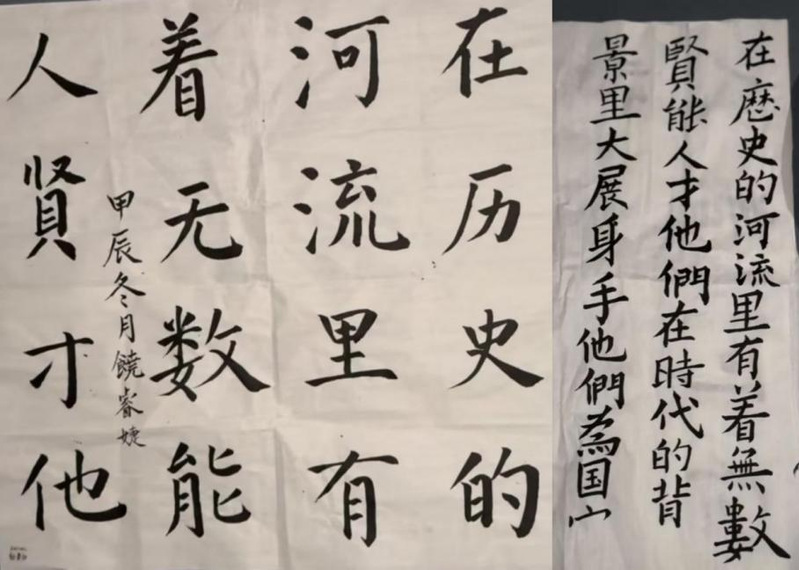 在历史的
河流里有
着无数能
人賢才他
甲辰冬月饒睿婕
在歷史的河流里有着無數
賢能人才他們在時代的背
景里大展身手他們為国